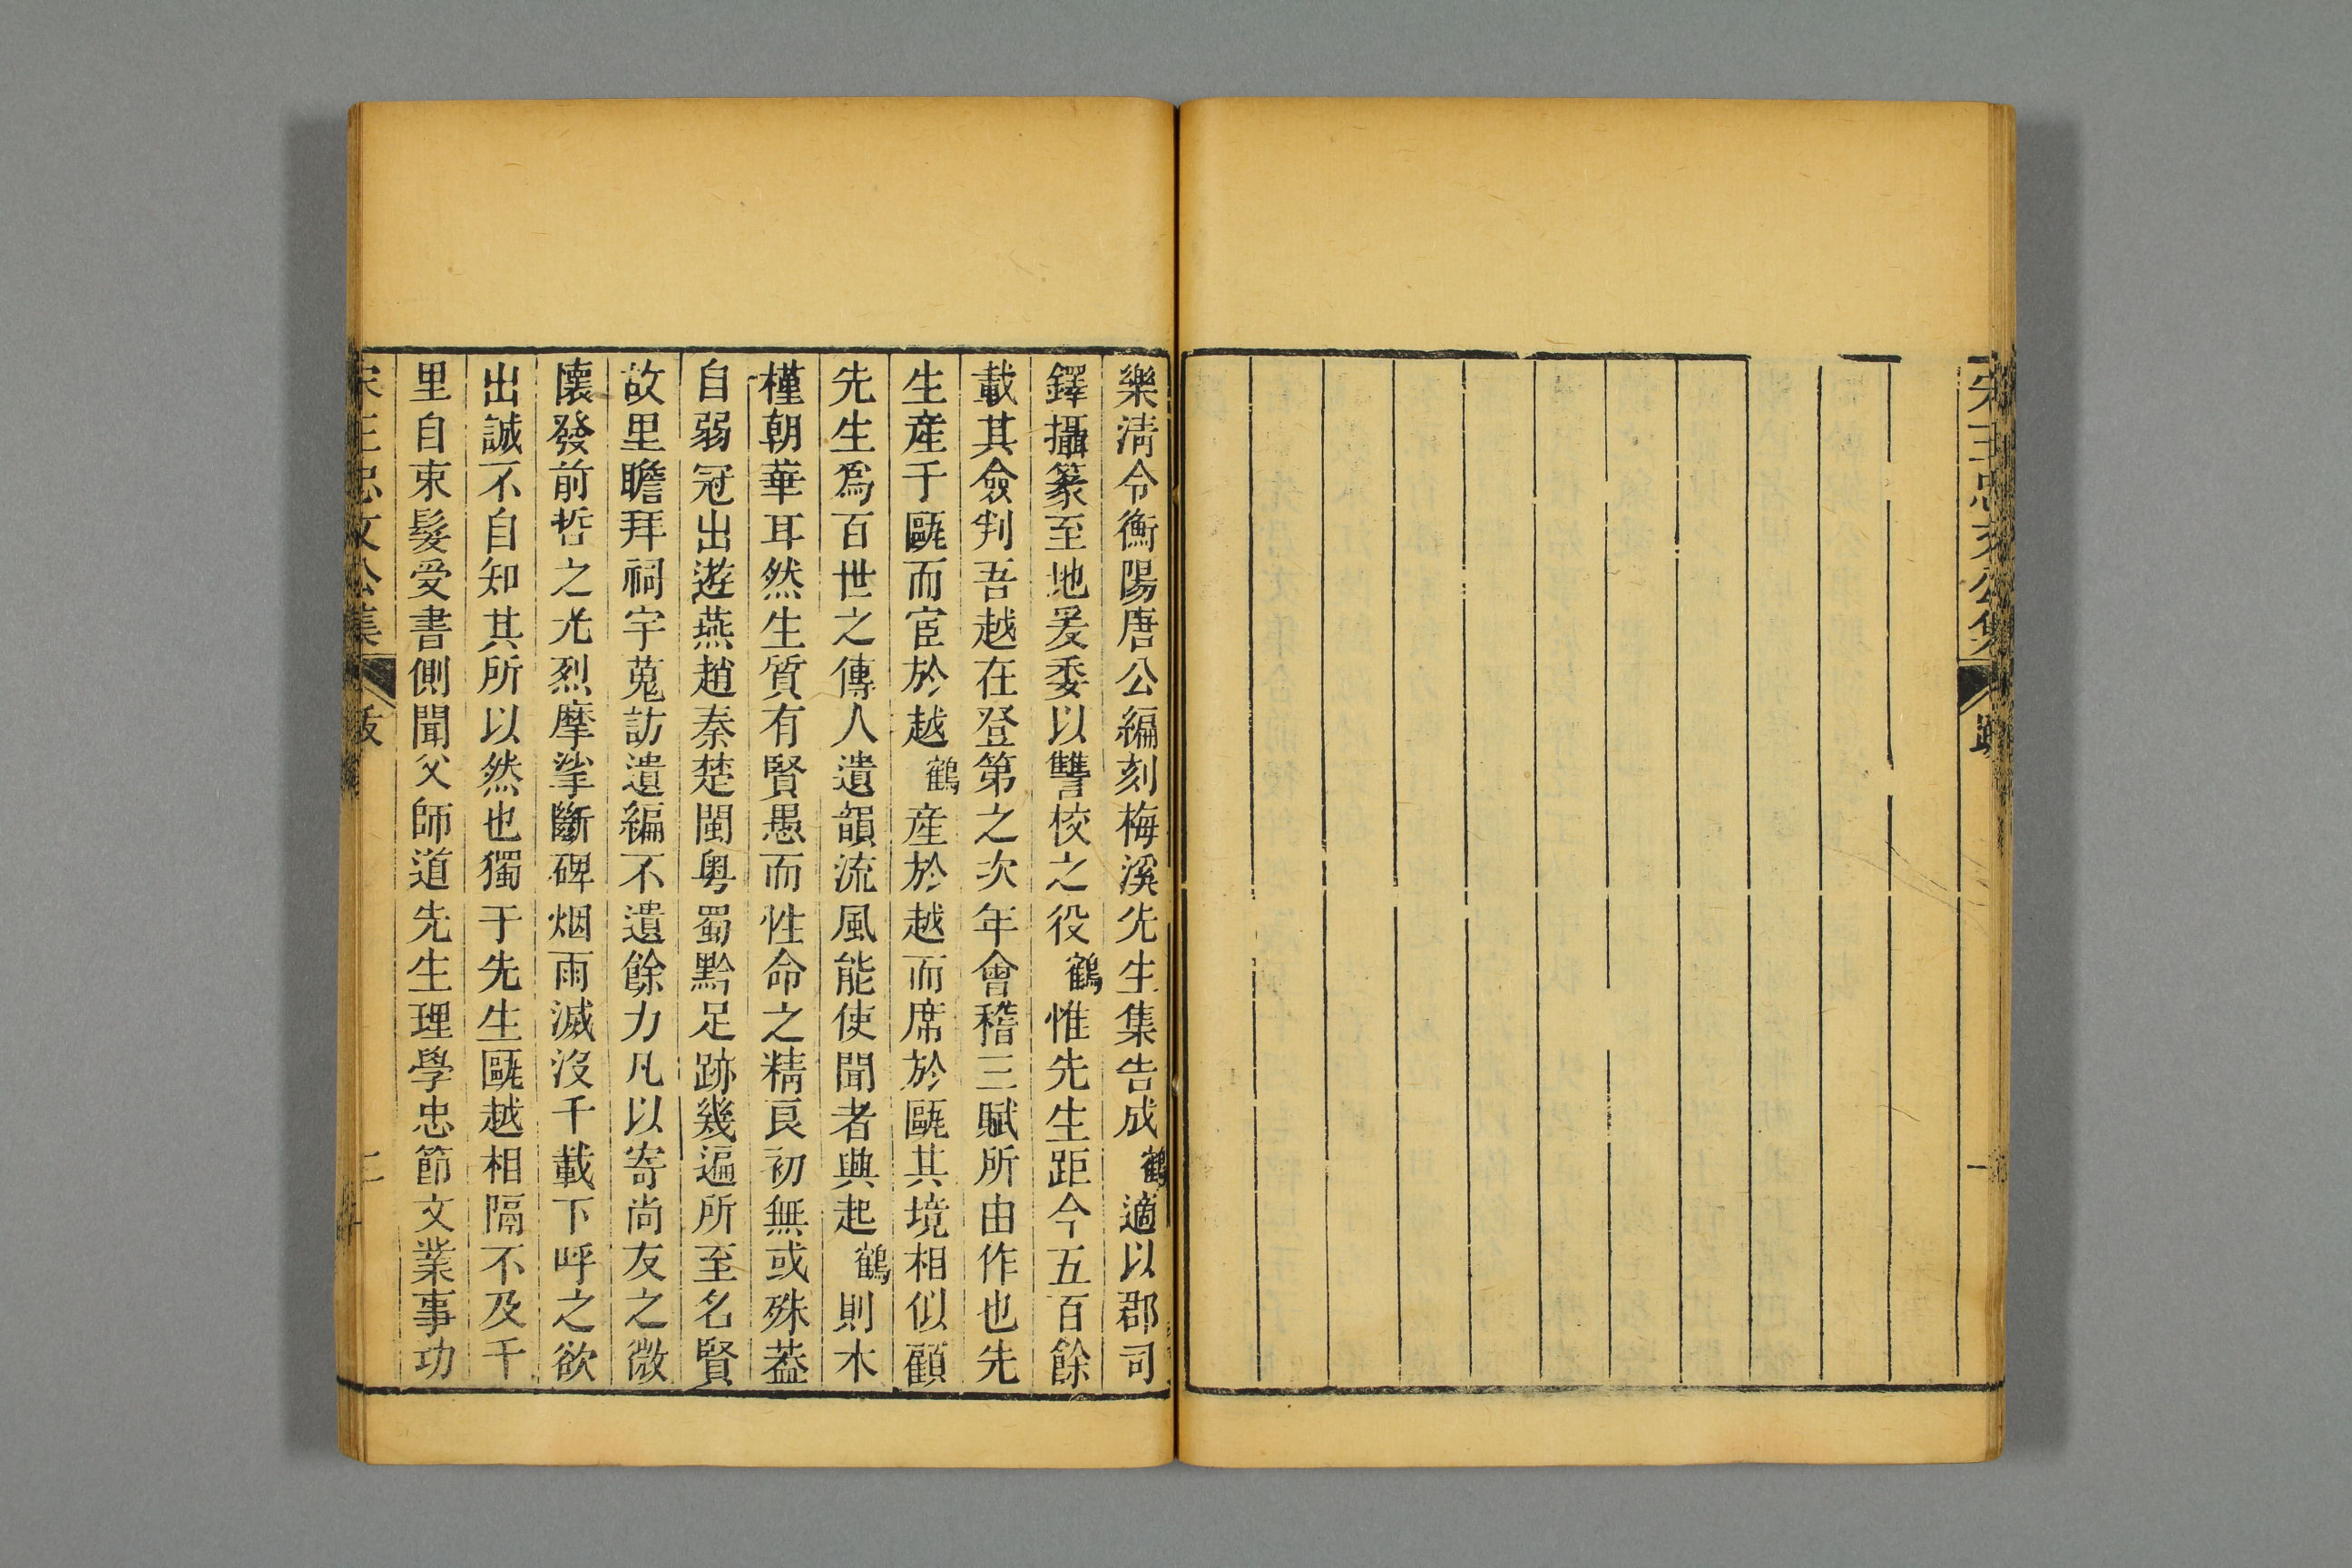 宋王忠文公集
一
樂清令衡陽唐公編刻梅溪先生集告成鶴適以郡司
鐸攝篆至地爰委以讐校之役鶴惟先生距今五百餘
載其僉判吾越在登第之次年會稽三賦所由作也先
生産于甌而宦於越鶴産於越而席於甌其境相似顧
先生爲百世之傳人遺韻流風能使聞者興起鶴則木
槿朝華耳然生質有賢愚而性命之精良初無或殊葢
自弱冠出遊燕趙秦楚閩粤蜀黔足跡幾遍所至名賢
故里瞻拜祠宇蒐訪遺編不遺餘力凡以寄尚友之微
懷發前哲之光烈摩挲斷碑烟雨滅沒千載下呼之欲
出誠不自知其所以然也獨于先生甌越相隔不及千
里自束髮受書側聞父師道先生理學忠節文業事功
宋王忠文公集
跋
二